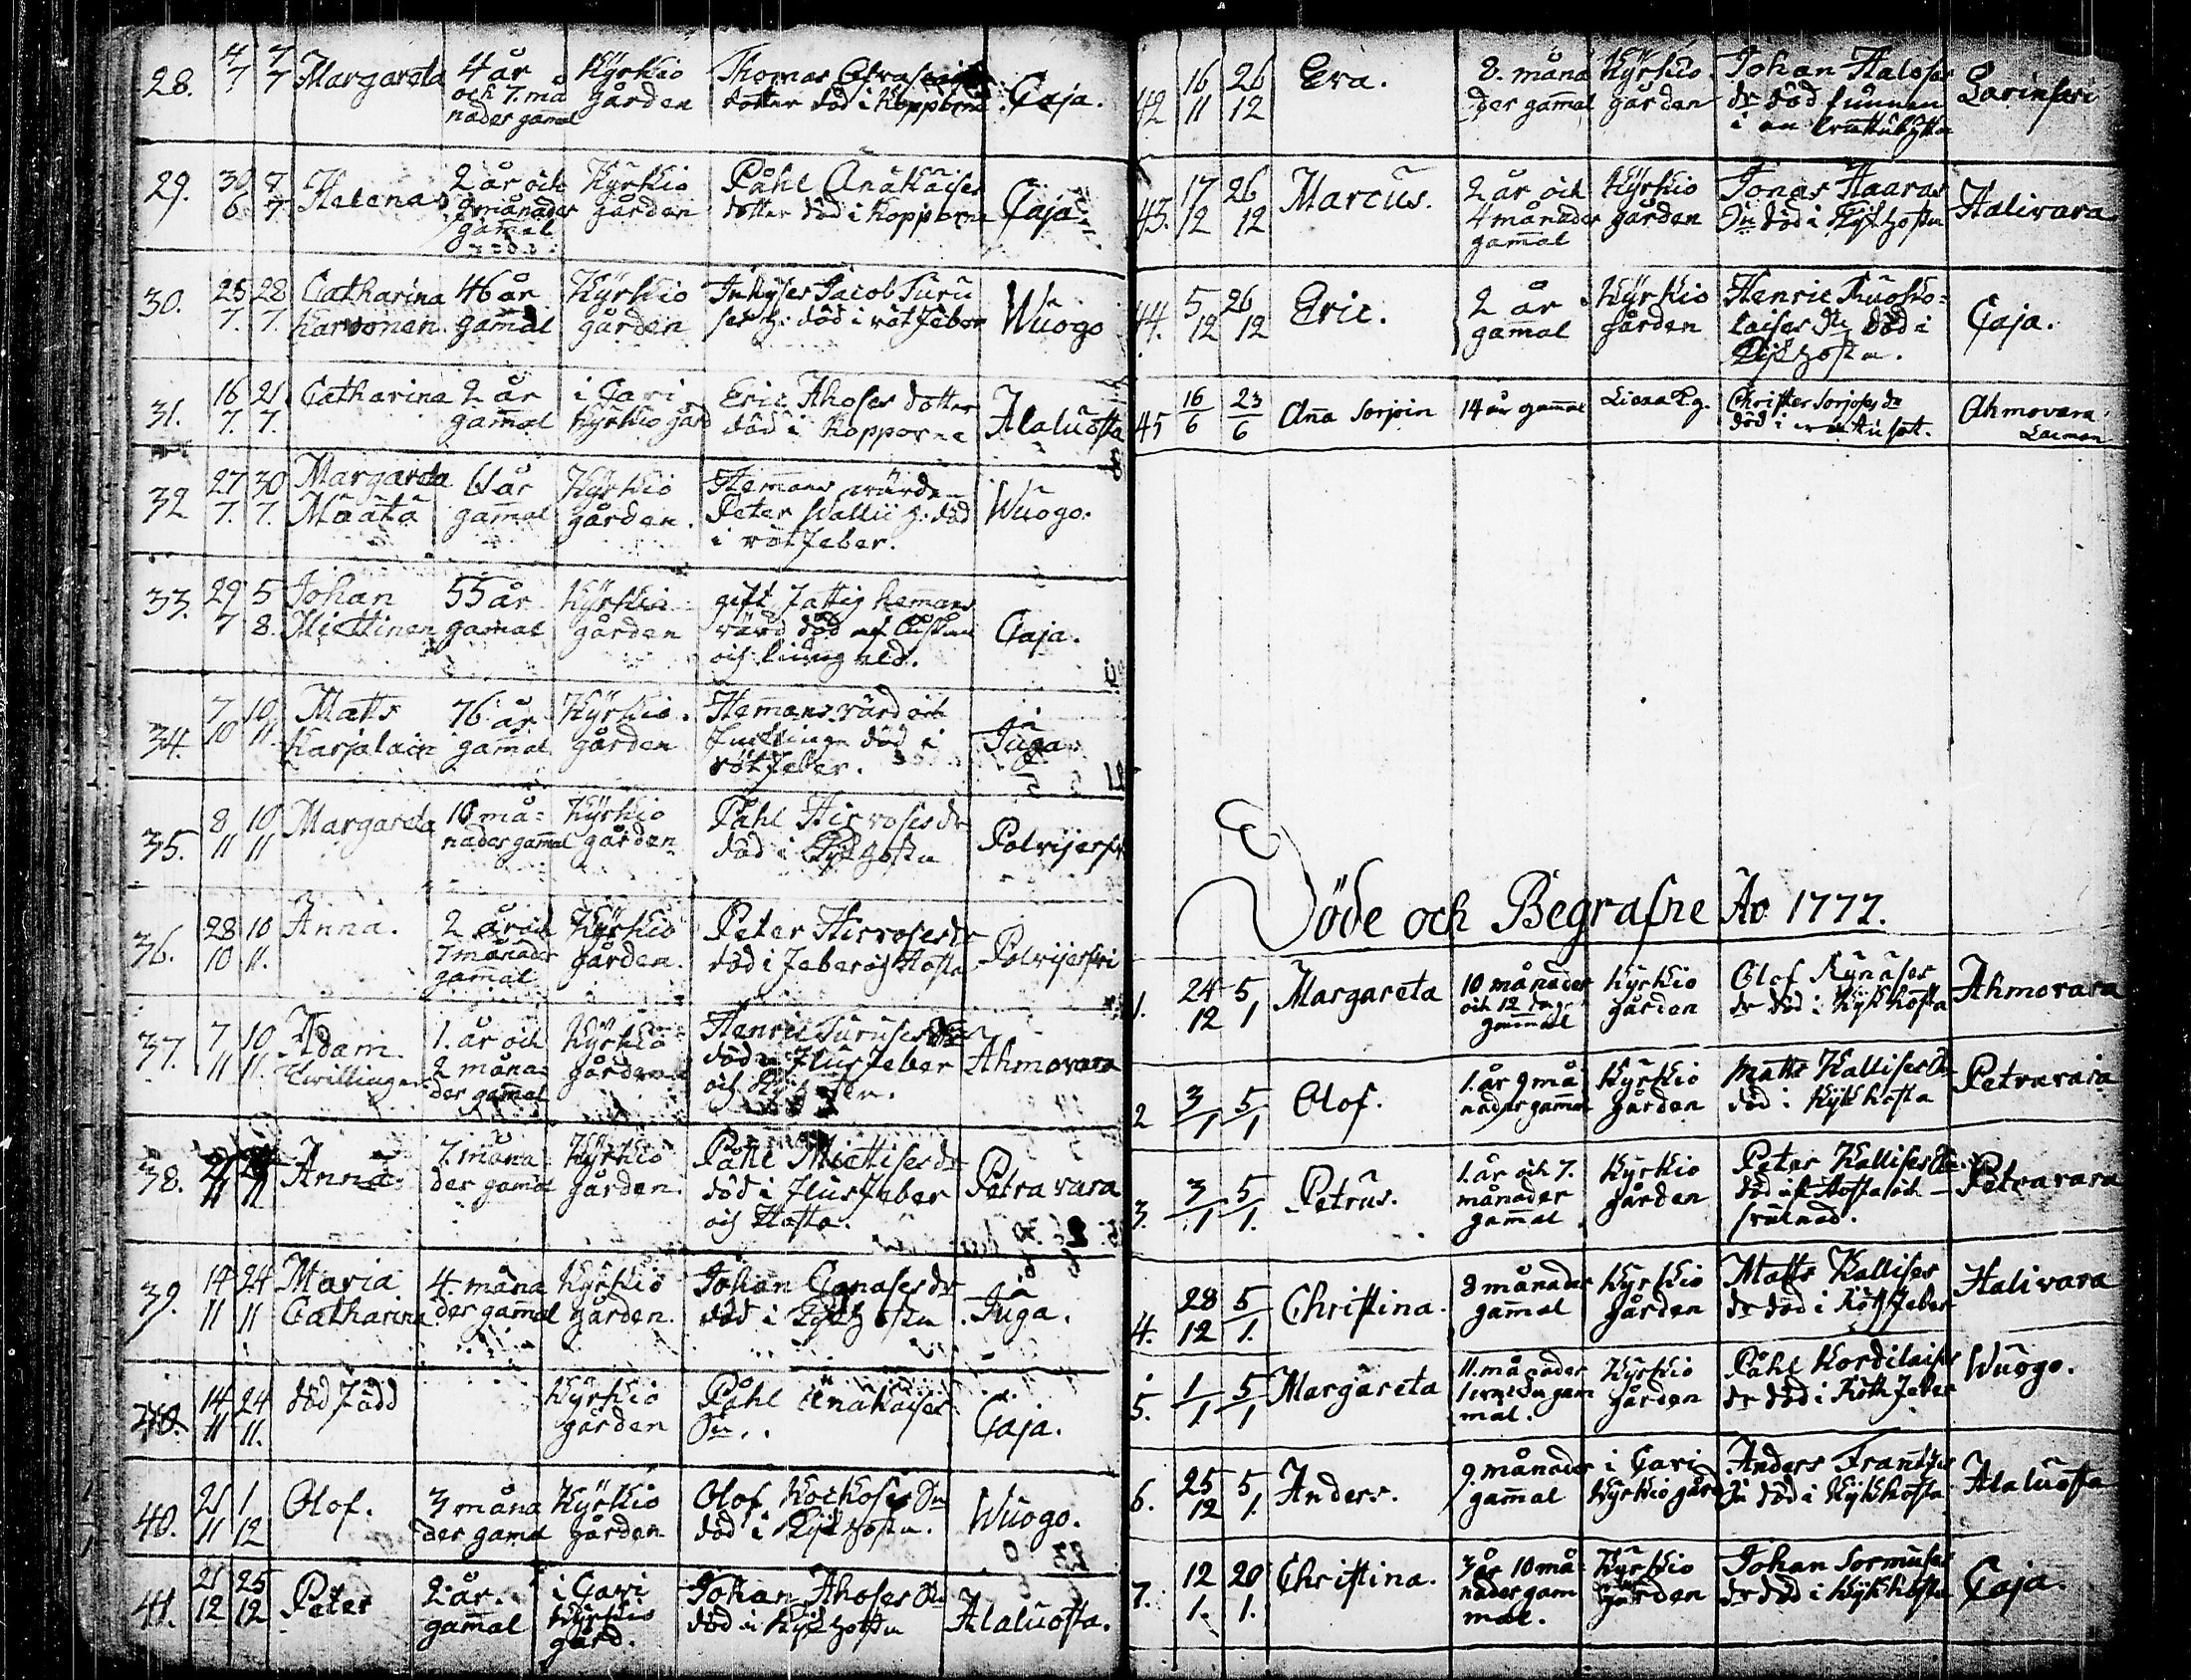 28. 4/7 7/7 Margareta 4 år Kyrkio Thomas
och 7. må gården dotter död i Kopporne Caja.
nader gamal
29. 30/6 8/7 Helena 2 år och Kyrkio Påhl Anukaises
månader gården dotter död i Kopporne Caja
gamal
30. 25/7. 28/7. Catharina 46 år Kyrkio Inhyses Jacob Turu
Karvonen gamal gården död i rötfeber Wuogo
31. 16/7. 21/7. Catharina 2 år i Cari Eric Ahoses dotter
gamal Kyrkio gård död i Kopporne Alaluosta
32 27/7. 30/7. Margareta år Kyrkio Hemans värden
Määtä gamal gården. Peter Kallii h. död Wuogo.
i rötfeber.
33. 29/7 5/8. Johan 55 år Kyrkio gift fattig hemans
Miettinen gamal gården värd död af Caja.
och
34. 7/10 10/11 Matts 76 år Kyrkio. Hemans värd och
Karjalain gamal gården död i Juga
rötfeber.
35. 8/11 10/11 Margareta 10 må= Kyrkio Påhl Hirvoses dr
nader gamal gården död i Kijkhosta Polvijerfvi
36. 28/10 10/11. Anna. 2 år och Kyrkio Peter Hirvoses dr
7 månader gården. död i feber och Hosta Polvijerfvi
gamal
37. 7/11 10/11. Adam. 1. år och Kyrkio Henric Turuses
Twillingen 2 måna= gården död i flusfeber Ahmovara
der gamal och
38. Anna. 7. måna Kyrkio Påhl Miettises dr
der gamal gården. död i flusfeber Petravara
och Hosta.
39. 14/11 24/11 Maria 4. måna Kyrkio Johan dr
Catharina der gamal gården. död i Kijkhosta Juga.
40. 14/11 24/11. död född Kyrkio Påhl Anukaises
gården Sn.. Caja.
40. 21/11 1/12 Olof. 3 måna Kyrkio Olof Kockoses Sn
der gamal gården död i Kijkhosta. Wuogo.
41. 21/12 25/12 Peter 2 år. i Cari Johan Ahoses Sn
gamal Kyrkio död i Kijkhosta Alaluosta.
gård.
42 16/11 26/12 Eva. 8. måna Kyrkio Johan
der gamal gården dr död funnen
i en
43. 17/12 26/12 Marcus. 2 år och Kyrkio Jonas Haaras
4 månader gården Sn död i Kijkhosta Halivara
gamal
44. 5/12 26/12 Eric. 2 år Kyrkio Henric Ruosko=
gamal gården laises Sn död i Caja.
Kijkhosta.
45 16/6 23/6 Ana Sorjoin 14 år gamal Christer Sorjoses dr Ahmovara
död i
Döde och Begrafne Ao 1777.
1. 24/12 5/1 Margareta 10 månader Kyrkio Olof Rynäses Ahmovara
och 12 dagar gården dr död i Kijkhosta
gammal
2 3/1 5/1 Olof. 1. år 9 må Kyrkio Matts Kallises Sn Petravara
nader gamal gården död i Kijkhosta
3. 3/1 5/1. Petrus. 1. år och 7. Kyrkio Peter Kallises Sn Petravara
månader gården död i Hosta och
gamal svulnad.
4. 28/12 5/1. Christina. 8 månader Kyrkio Matts Kallises Halivara
gamal gården dr död i Rötfeber
5. 1/1 5/1 Margareta 11. månader Kyrkio Påhl Kordilaises Wuogo.
gam gården dr död i Rötfeber
mal.
6. 25/12 5/1. Anders. 9 månader i Cari Anders Frantzes Alaluosta
gamal Kyrkio gård Sn död i Kijkhosta
7. 12/1. 20/1. Christina. 3 år 10 må= Kyrkio Johan Sormuses Caja.
nader gam gården dr död i Kijkhosta
mal.